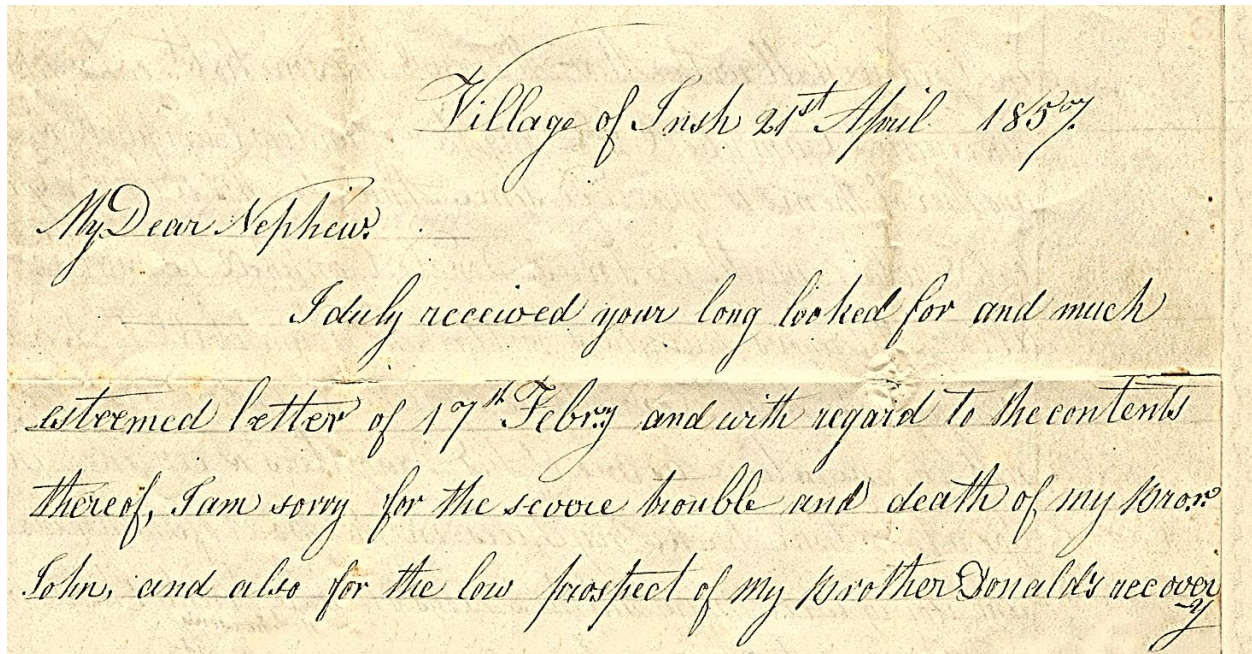 Village of Insh 21st April 1857.
My Dear Nephew.
I duly received your long looked for and much
esteemed letter of 17th Febry and with regard to the contents
thereof, I am sorry for the severe trouble and death of my Bror.
John, and also for the low prospect of my Brother Donald's recover
-y